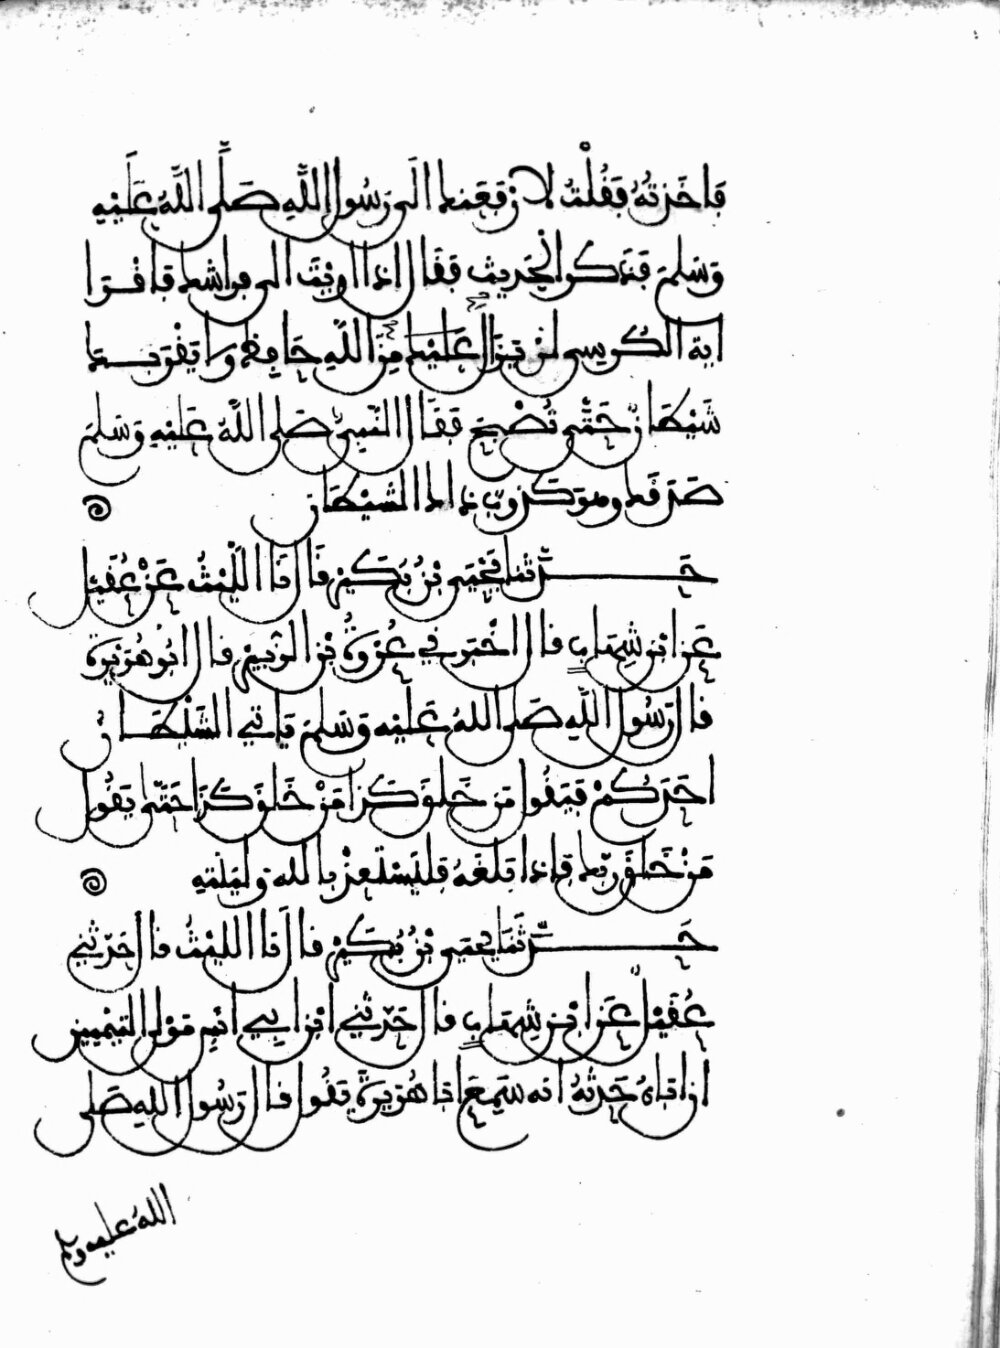 فَاَخَذْتُهُ فَقُلْتُ لَارْفَعَنَّكَ اِلَى رَسُولِ اللَّهِ صَلَّى اللَّهُ عَلَيْهِ
وَسَلَّمَ فَذَكَرَ الْحَدِيثَ فَقَالَ اِذَا اَوَيْتَ اِلَى فِرَاشِكَ فَاقْرَا
ايَةَ الْكُرْسِي لَنْ يَزَالَ عَلَيْكَ مِنَ اللَّهِ حَافِظٌ وَلَا يَقْرَبُكَ
شَيْطَانٌ حَتَّى تُصْبِحَ فَقَالَ النَّبِيُّ صَلَّى اللَّهُ عَلَيْهِ وَسَلَّمَ
صَدَقَكَ وَهْوَ كَذُوبٌ ذَاكَ الشَّيْطَانُ
حَدَّثَنَا يَحْيَى بْنُ بُكَيْرٍ قَالَ نَا اللَّيْثُ عَنْ عُقَيْلٍ
عَنِ ابْنِ شِهَابٍ قَالَ اَخْبَرَنِي عُرْوَةُ بْنُ الزُّبَيْرِ قَالَ اَبُو هُرَيْرَةَ
قَالَ رَسُولُ اللَّهِ صَلَّى اللهُ عَلَيْهِ وَسَلَّمَ يَاتِي الشَّيْطَانُ
اَحَدَكُمْ فَيَقُولُ مَنْ خَلَقَ كَذَا مَنْ خَلَقَ كَذَا حَتَّى يَقُولَ
مَنْ خَلَقَ رَبَّكَ فَاِذَا بَلَغَهُ فَلْيَسْتَعِذْ بِاللهِ وَلْيَنْتَهِ
حَدَّثَنَا يَحْيَى بْنُ بُكَيْرٍ قَالَ نَا اللَّيْثُ قَالَ حَدَّثَنِي
عُقَيْلٌ عَنِ ابْنِ شِهَابٍ قَالَ حَدَّثَنِي ابْنُ اَبِي اَنَسٍ مَوْلَى التَّيْمِيِّينَ
اَنَّ اَبَاهُ حَدَّثَهُ اَنَّهُ سَمِعَ اَبَا هُرَيْرَةَ يَقُولُ قَالَ رَسُولُ اللهِ صَلَّى
اللهُ عليه وسلم